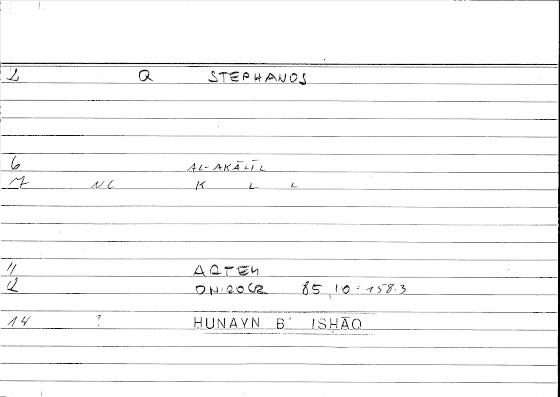 2 Q STEPHANOS
6 AL-AKĀLĪL
7 NC K L L
11 ARTEM
12 ONIROCR 85,10 = 158.3
14 ? HUNAYN B' ISHĀQ